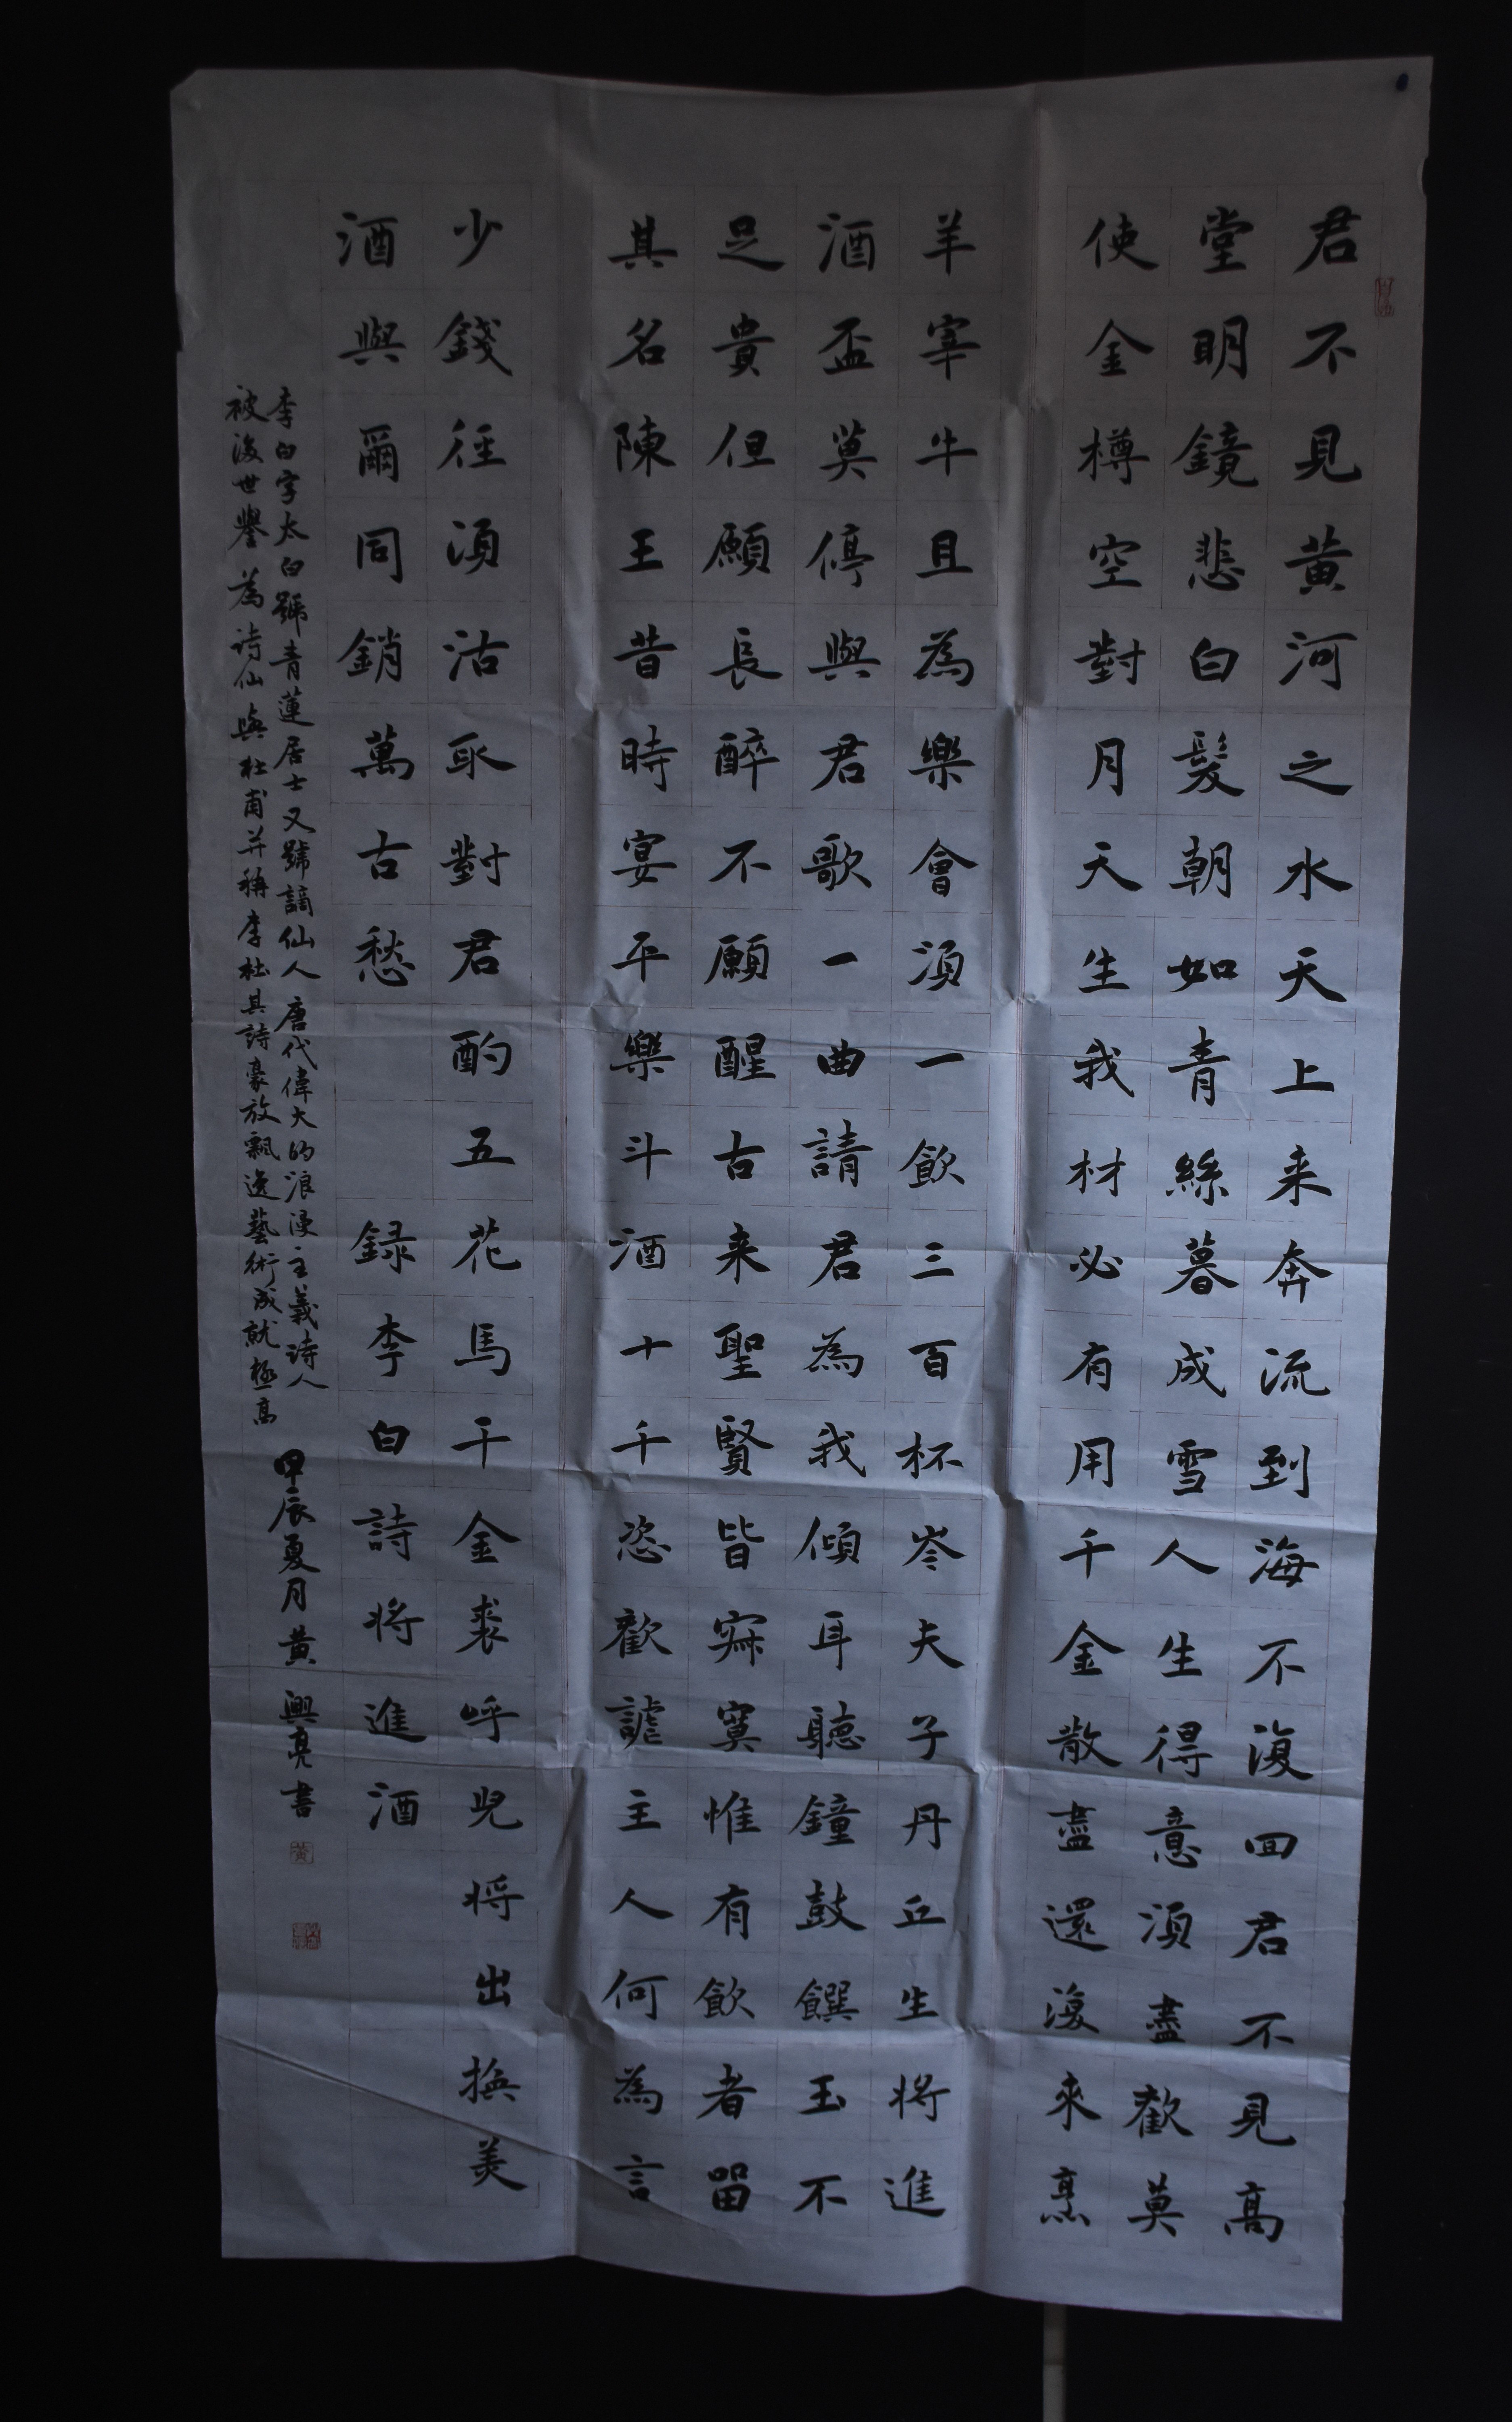 君不見黃河之水天上来奔流到海不復回君不見高
堂明鏡悲白髮朝如青絲暮成雪人生得意須盡歡莫
使金樽空對月天生我材必有用千金散盡還復來烹
羊宰牛且為樂會須一飲三百杯岑夫子丹丘生將進
酒盃莫停與君歌一曲請君為我傾耳聽鐘鼓饌玉不
足貴但願長醉不願醒古来聖賢皆寂寞惟有飲者留
其名陳王昔時宴平樂斗酒十千恣歡謔主人何為言
少錢徑須沽取對君酌五花馬千金裘呼兒將出換美
酒與爾同銷萬古愁 録李白詩將進酒
李白字太白號青蓮居士又號謫仙人唐代偉大的浪漫主義詩人
被後世譽為詩仙與杜甫并稱李杜其詩豪放飄逸藝術成就極高
甲辰夏月黃興亮書
黃